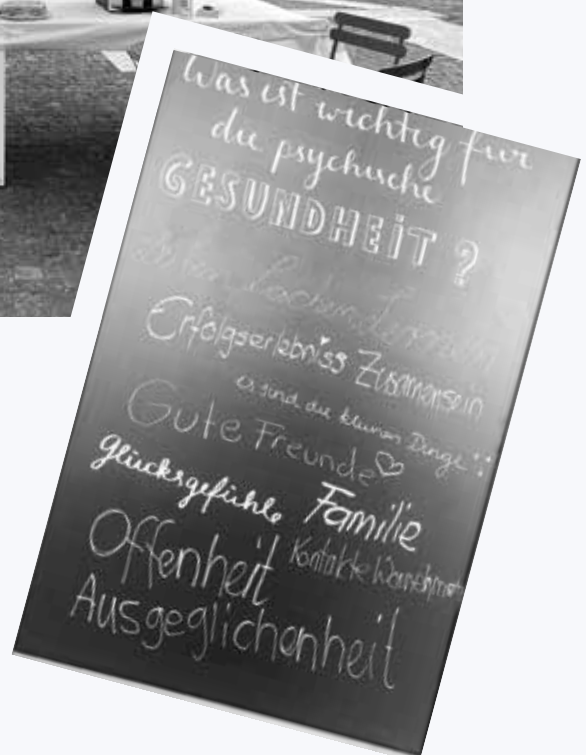 Was ist wichtig für
die psychische
GESUNDHEiT ?
Erfolgserlebniss Zusamensein
es sind die kleinen Dinge
Gute Freunde ♡
glücksgefühle Familie
Offenheit Kontakte
Ausgeglichenheit